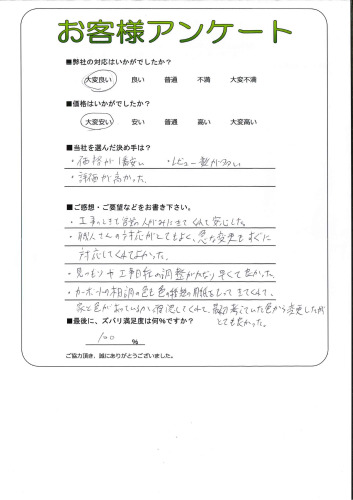 お客様アンケート
■弊社の対応はいかがでしたか?
大変良い 良い 普通 不満 大変不満
■価格はいかがでしたか?
大変安い 安い 普通 高い 大変高い
■当社を選んだ決め手は?
・価格が1番安い ・レビュー数が多い
・評価が高かった。
■ご感想・ご要望などをお書き下さい。
・工事のときも 人がみにきてくれて安心した。
・職人さんの対応がとてもよく、急な変更もすぐに
対応してくれてよかった。
・見つもりや工事日程の調整がかなり早くて良かった。
・カーポートの 色も色の種類の用紙をもってきてくれて、
家と色があっているか確認してくれて、最初考えていた色から変更したが
とても良かった。
■最後に、ズバリ満足度は何%ですか?
100 %
ご協力頂き、誠にありがとうございました。